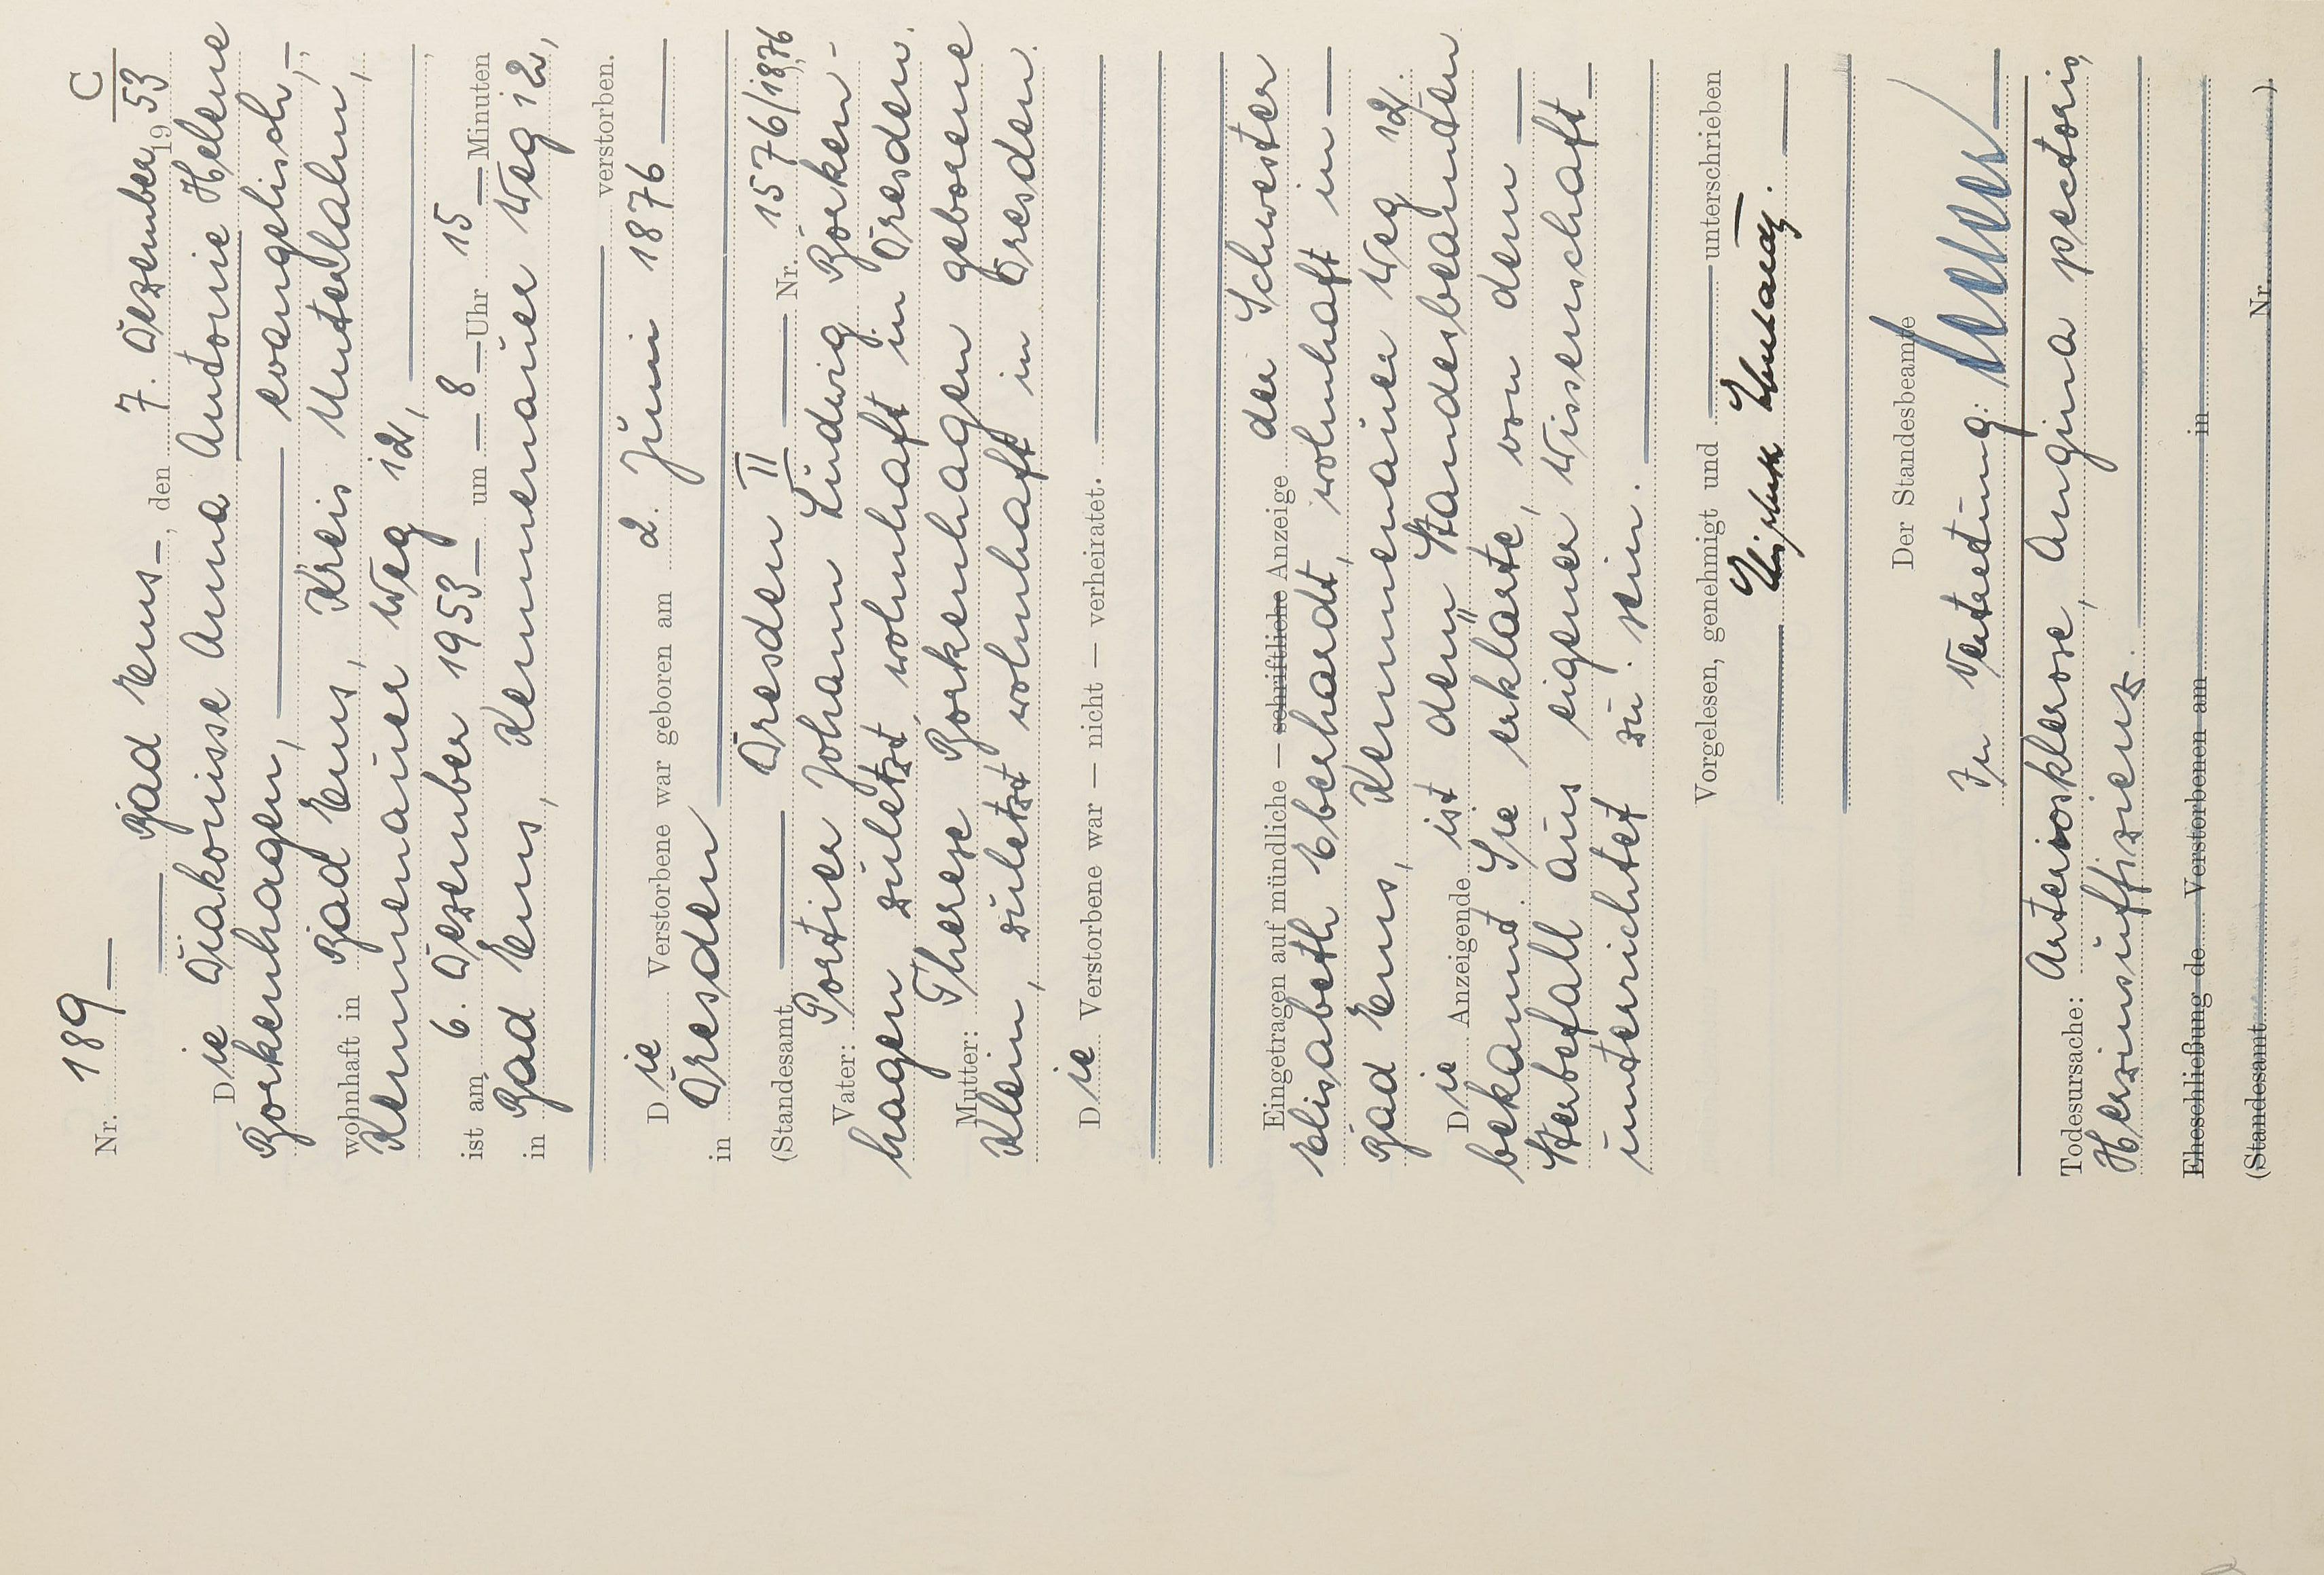 C
Nr. 189
Bad Ems, den 7. Dezember 1953
Die Diakonisse Anna Antonie Helene
Borkenhagen, evangelisch,
wohnhaft in Bad Ems, Kreis Unterlahn,
Kemmenauer Weg 12,
ist am 6. Dezember 1953 um 8 Uhr 15 Minuten
in Bad Ems, Kemmenauer Weg 12,
verstorben.
Die Verstorbene war geboren am 2. Juni 1876
in Dresden
(Standesamt Dresden II Nr. 1576/1876
Vater: Portier Johann Ludwig Borken-
hagen, zuletzt wohnhaft in Dresden.
Mutter: Therese Borkenhagen geborene
Klein, zuletzt wohnhaft in Dresden.
Die Verstorbene war — nicht — verheiratet.
Eingetragen auf mündliche — schriftliche Anzeige der Schwester
Elisabeth Eberhardt, wohnhaft in
Bad Ems, Kemmenauer Weg 12.
Die Anzeigende ist dem Standesbeamten
bekannt. Sie erklärte, von dem
Sterbefall aus eigener Wissenschaft
unterrichtet zu sein.
Vorgelesen, genehmigt und unterschrieben
Der Standesbeamte
In Vertretung:
Todesursache: Arteriosklerose, Angina pectoris,
Herzinsuffizienz.
Eheschließung de Verstorbenen am in
(Standesamt Nr. )